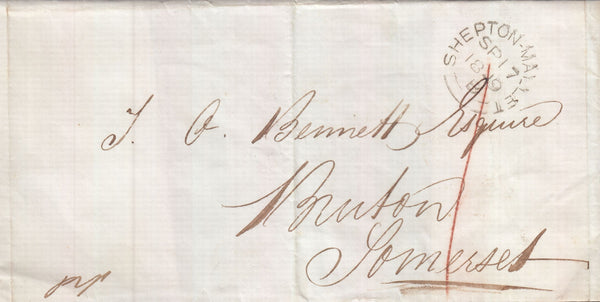 SHEPTON-MALLET
SP 17
1849
T. O. Bennett Esquire
Bruton
Somerset